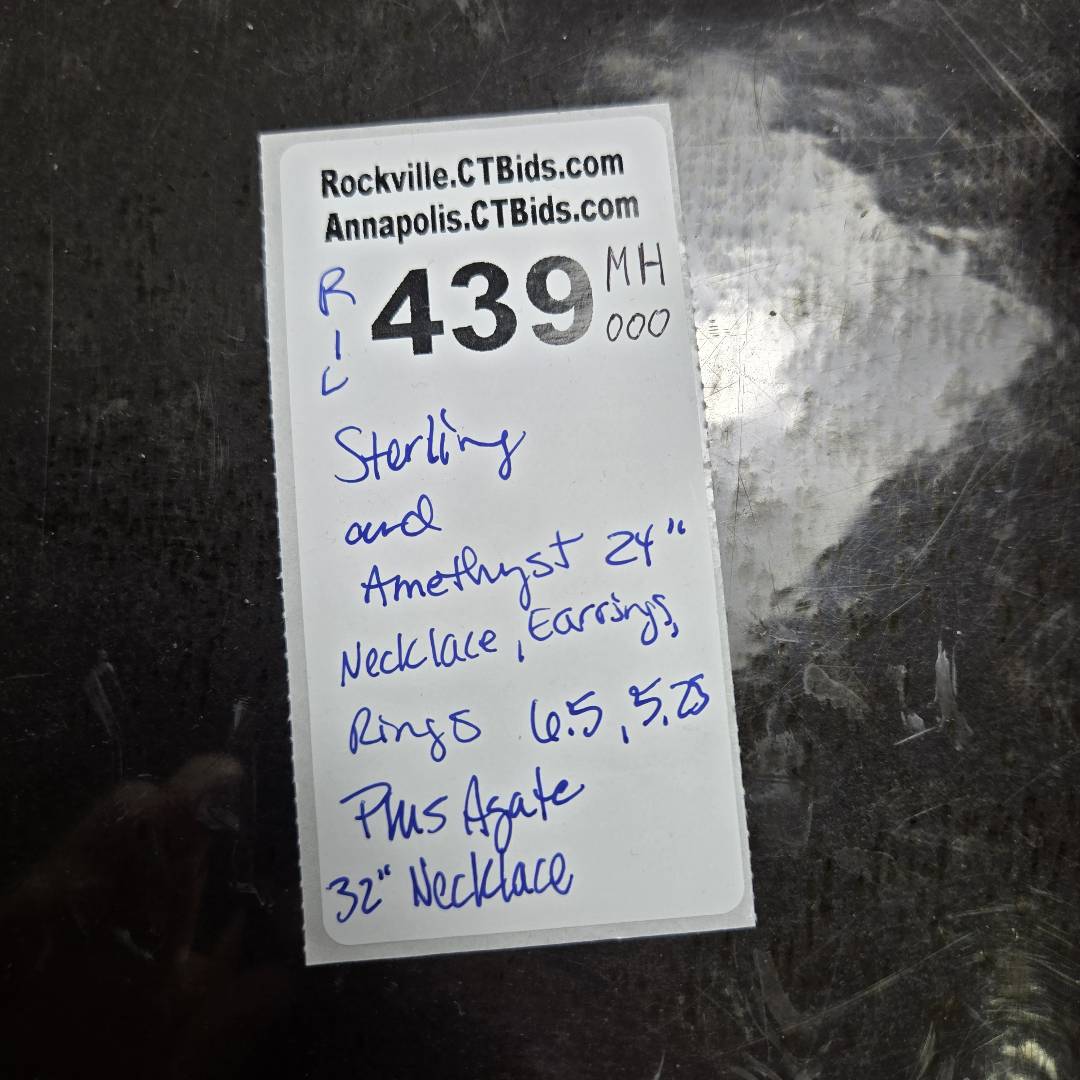 Rockville.CTBids.com
Annapolis.CTBids.com
R I L
439 MH
000
Sterling
and
Amethyst 24"
Necklace, Earrings,
Rings 6.5, 5.25
Plus Agate
32" Necklace